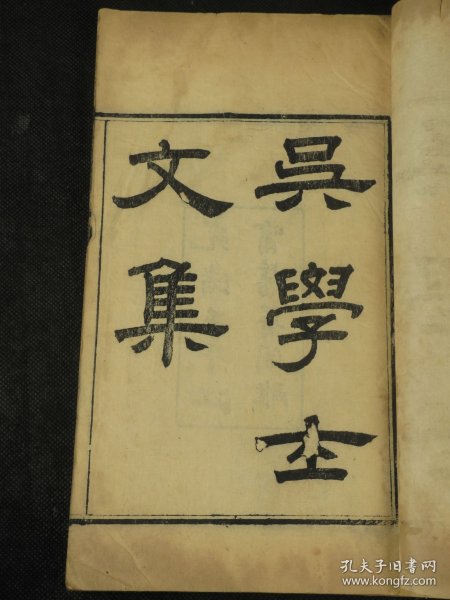 吳學士
文集
孔夫子旧书网
www.kongfz.com